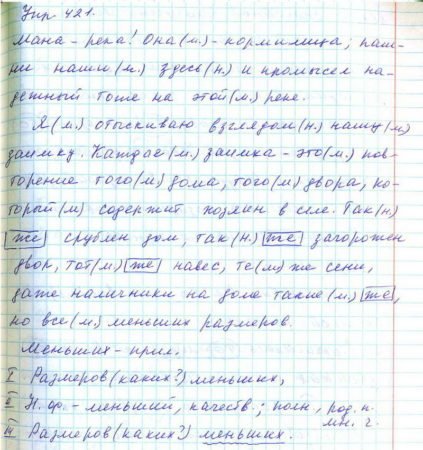 Упр 421.
Мана - река! Она(м.) - кормилица; паш-
ни наши(м.) здесь(н.) и промысел на-
дежный тоже на этой(м.) реке.
Я(м.) отыскиваю взглядом(н.) нашу(м)
заимку. Каждая(м.) заимка - это(м.) пов-
торение того(м) дома, того(м) двора, ко-
торый(м) содержит хозяин в селе. Так(н.)
же срублен дом, так(н.) же загорожен
двор, тот(м.) же навес, те(м) же сени,
даже наличники на доме такие(м.) же,
но все(м.) меньших размеров.
Меньших - прил.
I Размеров (каких?) меньших,
II Н.ф. - меньший, качеств.; полн., род. п.
мн. ч.
III Размеров (каких?) меньших.